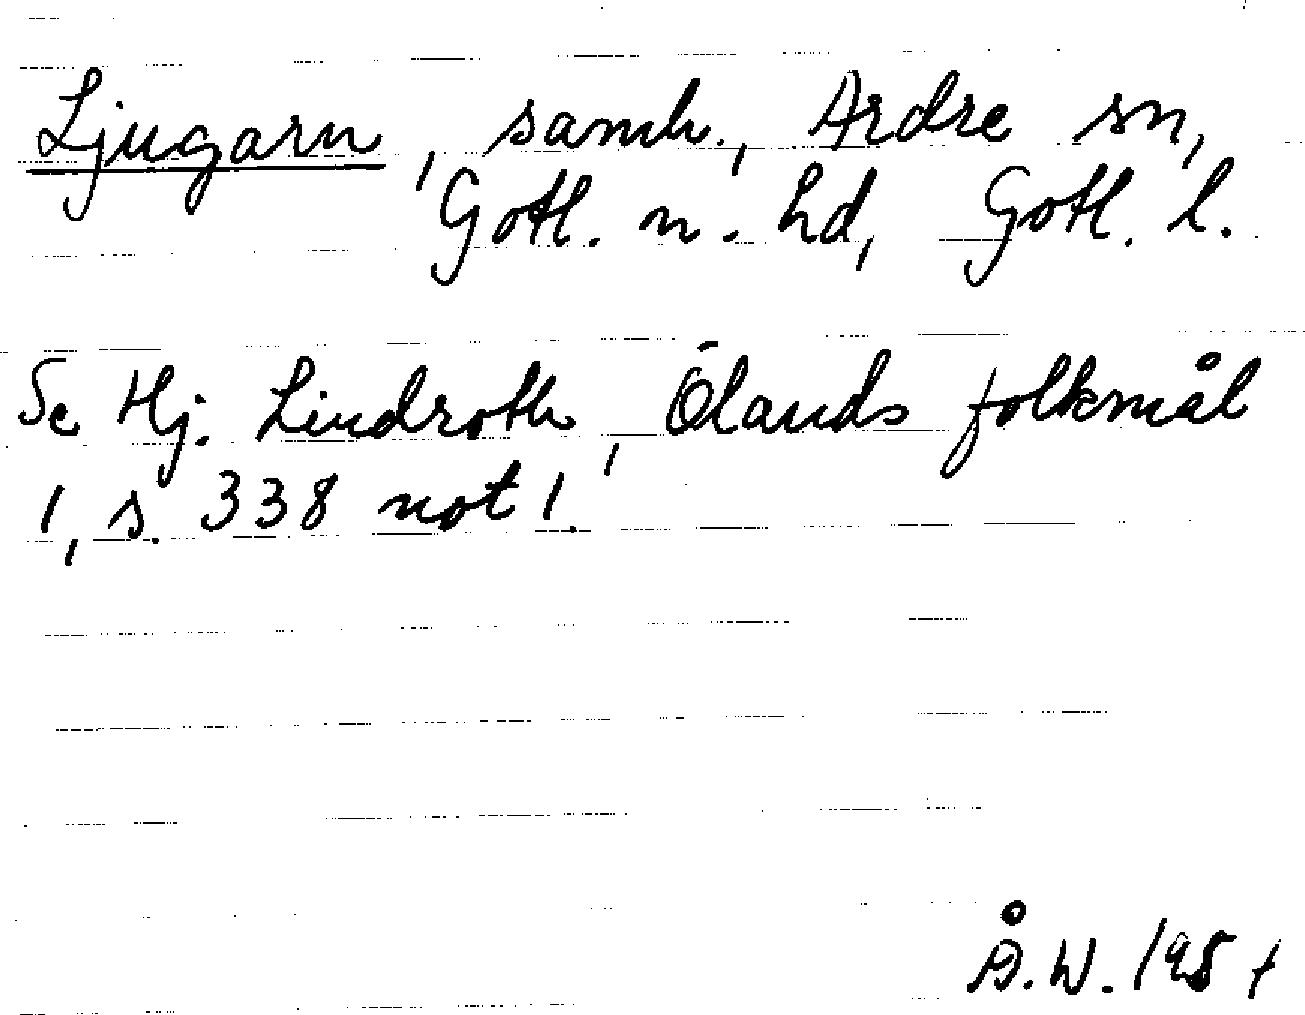 Ljugarn, samh., Ardre sn,
Gotl. n. hd, Gotl. l.
Se Hj. Lindroth, Ölands folkmål
1, s. 338 not 1.
Å.W.